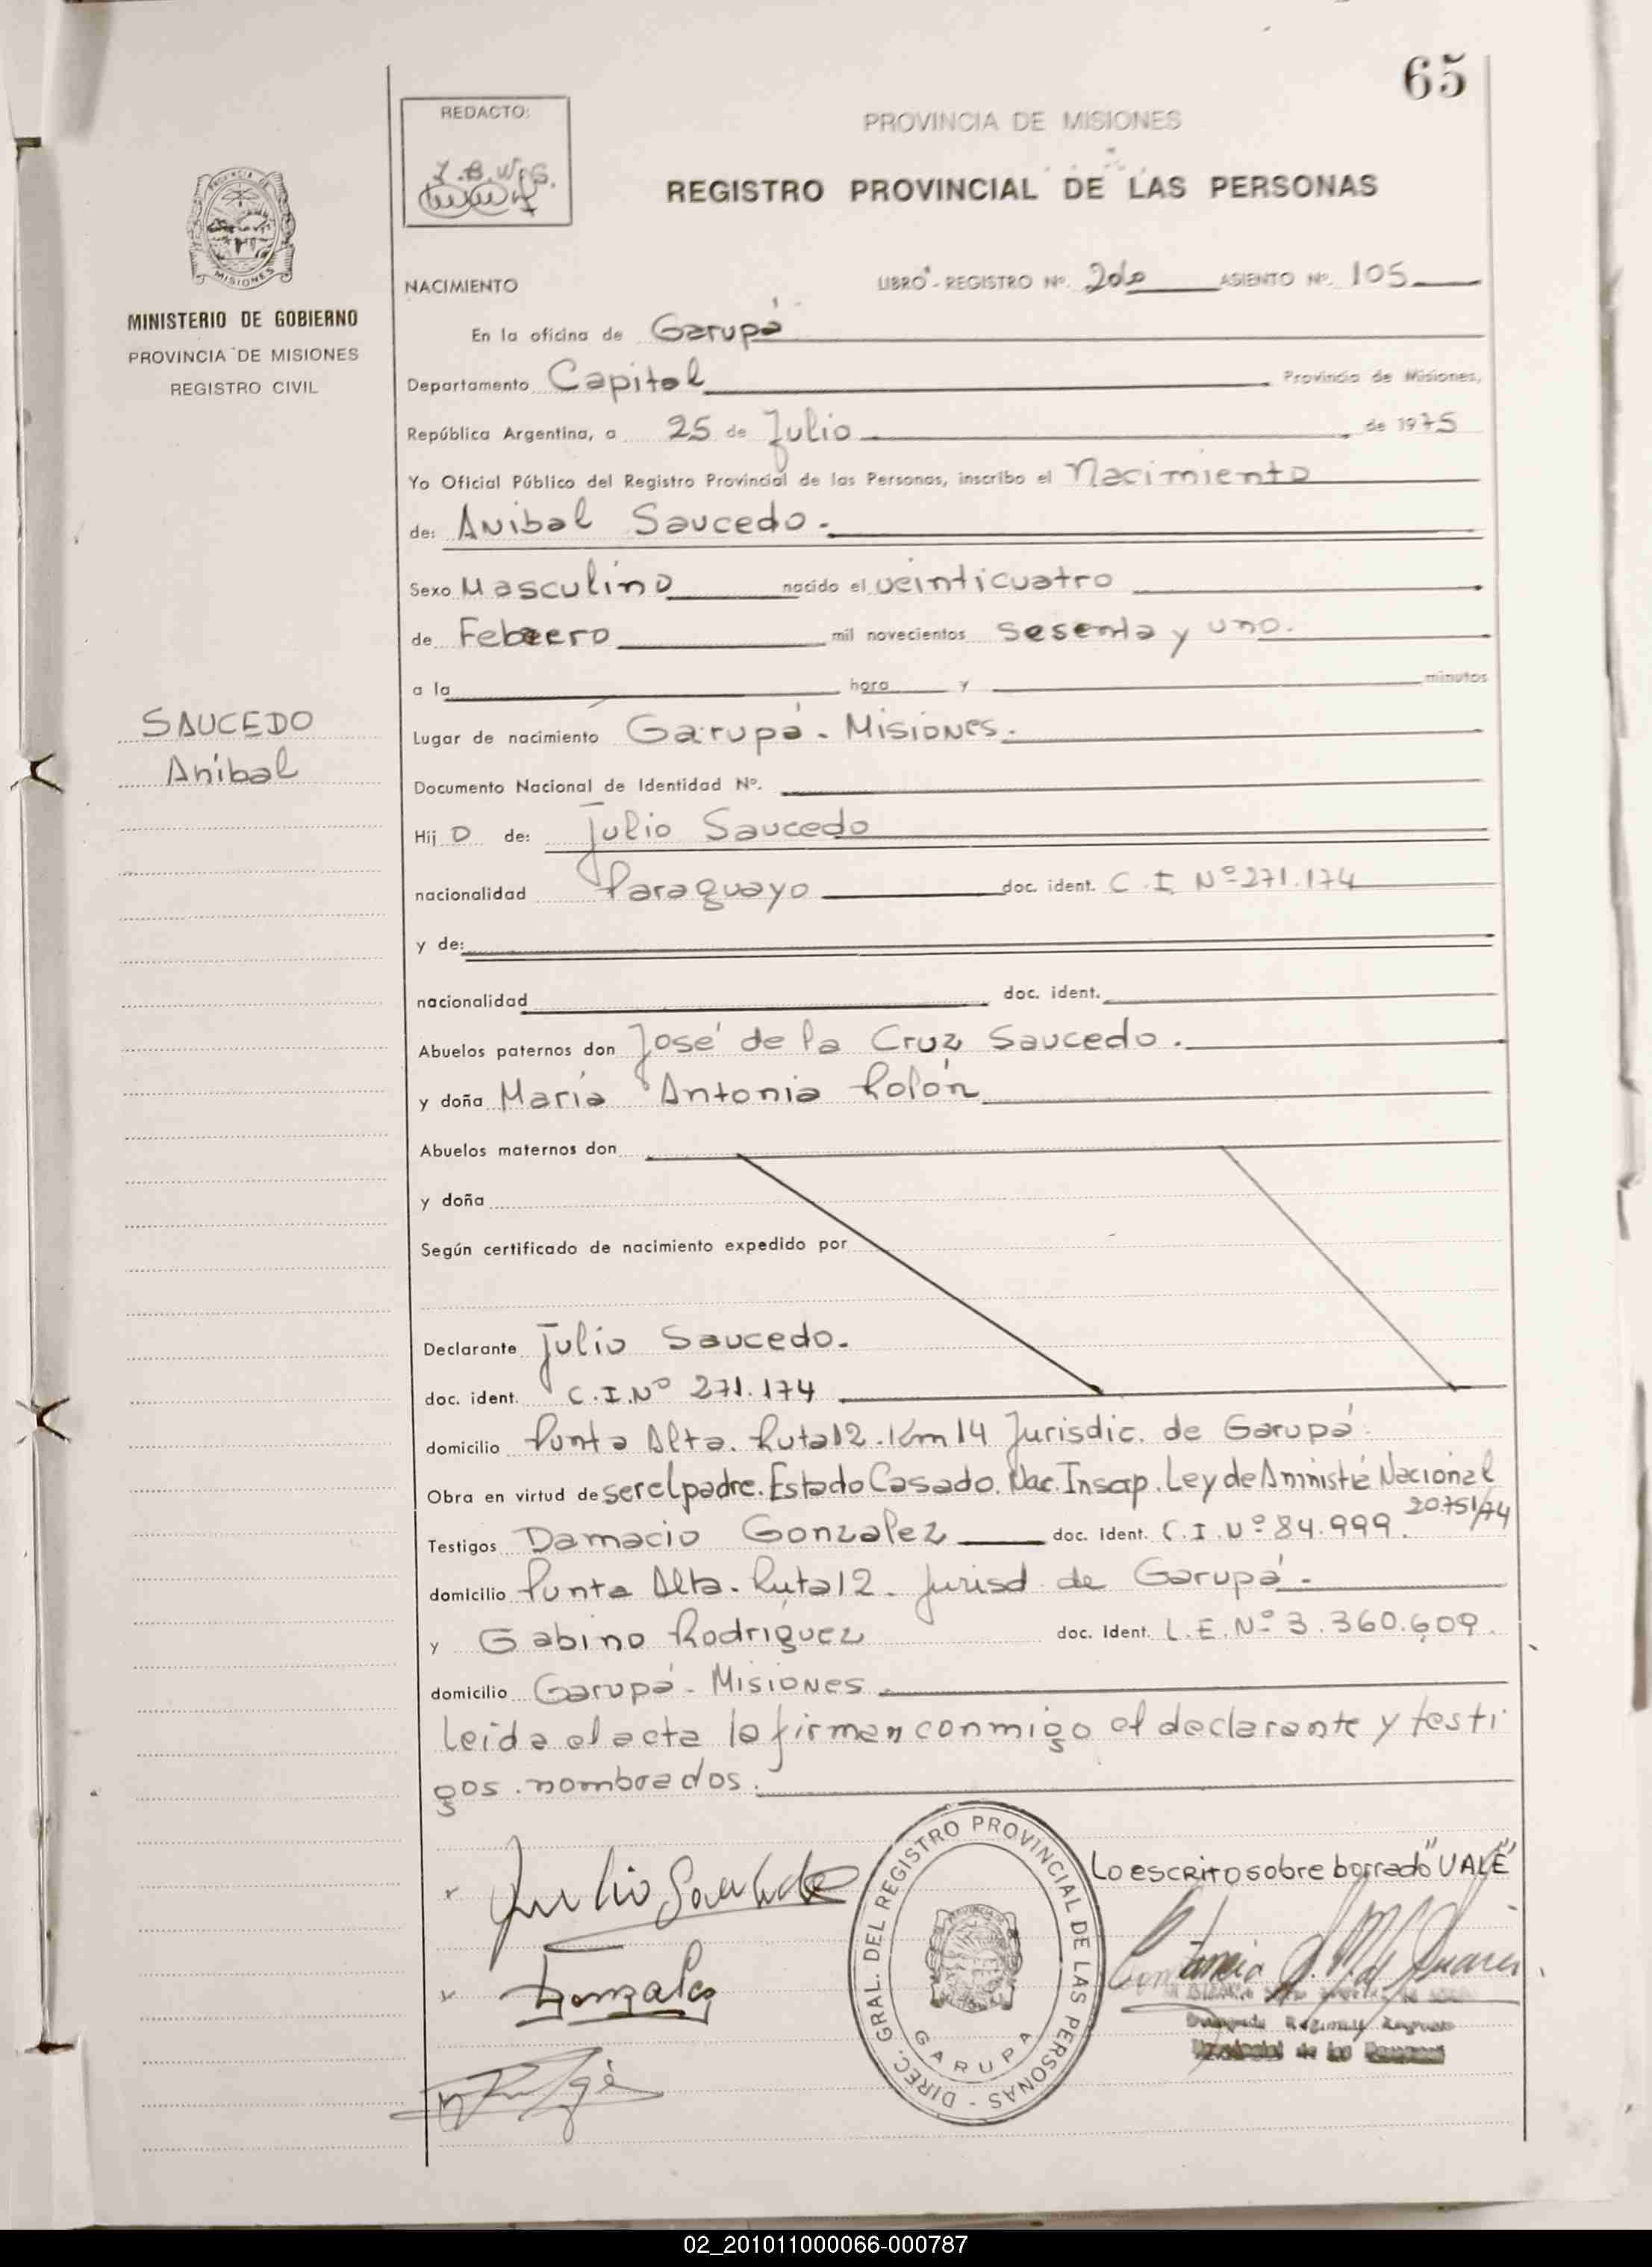 65
REDACTO:
PROVINCIA DE MISIONES
REGISTRO PROVINCIAL DE LAS PERSONAS
PROVINCIA DE
MISIONES
MINISTERIO DE GOBIERNO
PROVINCIA DE MISIONES
REGISTRO CIVIL
SAUCEDO
Anibal
NACIMIENTO LIBRO - REGISTRO Nº. ASIENTO Nº. 105
En la oficina de Garupá
Departamento Capital Provincia de Misiones,
República Argentina, a 25 de Julio de 1975
Yo Oficial Público del Registro Provincial de las Personas, inscribo el Nacimiento
de: Anibal Saucedo.
Sexo Masculino nacido el veinticuatro
de Febrero mil novecientos sesenta y uno.
a la hora y minutos
Lugar de nacimiento Garupá - Misiones.
Documento Nacional de Identidad Nº.
Hij o de: Julio Saucedo
nacionalidad Paraguayo doc. ident. C.I. Nº 271.174
y de:
nacionalidad doc. ident.
Abuelos paternos don José de la Cruz Saucedo.
y doña María Antonia Rolón
Abuelos maternos don
y doña
Según certificado de nacimiento expedido por
Declarante Julio Saucedo.
doc. ident. C.I.Nº 271.174
domicilio Punta Alta. Ruta 12. Km 14 Jurisdic. de Garupá.
Obra en virtud de ser el padre. Estado Casado. Nac. Inscp. Ley de Aministíe Nacional
20751/74
Testigos Damacio Gonzalez doc. Ident. C.I.Nº 84.999.
domicilio Punta Alta. Ruta 12. Jurisd. de Garupá.
y Gabino Rodríguez doc. Ident. L.E.Nº 3.360.609.
domicilio Garupá - Misiones
Leida el acta la firman conmigo el declarante y testi
gos nombrados.
Lo escrito sobre borrado "VALE"
Julio Saucedo
Gonzalez
DIREC. GRAL. DEL REGISTRO PROVINCIAL DE LAS PERSONAS -
GARUPA
02_201011000066-000787